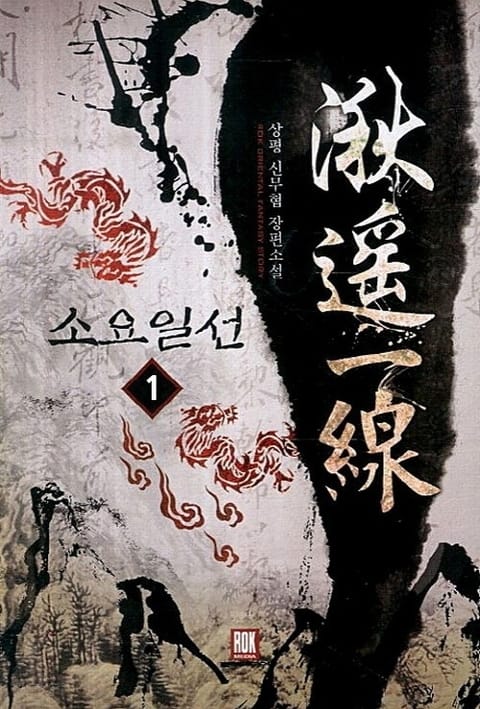 湫遙一線
상평 신무협 장편소설
ROK ORIENTAL FANTASY STORY
소요일선
1
ROK
MEDIA